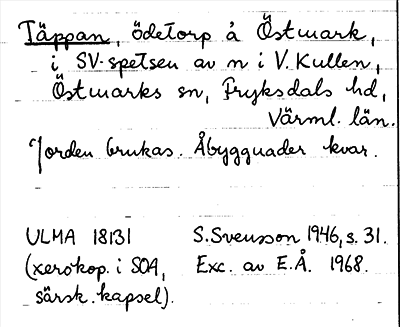 Täppan, ödetorp å Östmark,
i SV-spetsen av n i V. Kullen,
Östmarks sn, Fryksdals hd,
Värml. län.
Jorden brukas. Åbyggnader kvar.
ULMA 18131
(xerokop. i SOA,
särsk. kapsel).
S. Svensson 1946, s. 31.
Exc. av E.Å. 1968.